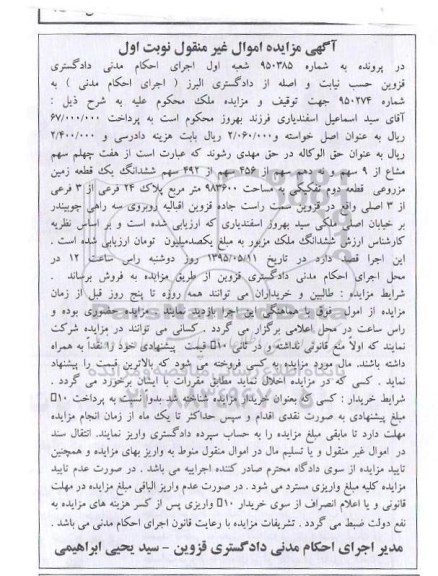 آگهی مزایده اموال غیر منقول نوبت اول
در پرونده به شماره ۹۵۰۳۸۵ شعبه اول اجرای احکام مدنی دادگستری
قزوین حسب نیابت و اصله از دادگستری البرز ( اجرای احکام مدنی ) به
شماره ۹۵۰۲۷۴ جهت توقیف و مزایده ملک محکوم علیه به شرح ذیل :
آقای سید اسماعیل اسفندیاری فرزند بهروز محکوم است به پرداخت ۶۷/۰۰۰/۰۰۰
ریال به عنوان اصل خواسته و۲/۰۶۰/۰۰۰ ریال بابت هزینه دادرسی و ۲/۴۰۰/۰۰۰
ریال به عنوان حق الوکاله در حق مهدی رشوند که عبارت است از هفت چهلم سهم
مشاع از ۹ سهم و نه دهم سهم از ۴۵۶ سهم از ۴۹۲ سهم ششدانگ یک قطعه زمین
مزروعی قطعه دوم تفکیکی به مساحت ۹۸۳۶۰۰ متر مربع پلاک ۲۴ فرعی از ۳ فرعی
از ۳ اصلی واقع در قزوین سمت راست جاده قزوین اقبالیه روبروی سه راهی چوبیندر
بر خیابان اصلی ملکی سید بهروز اسفندیاری که ارزیابی شده است و بر اساس نظریه
کارشناس ارزش ششدانگ ملک مزبور به مبلغ یکصدمیلیون تومان ارزیابی شده است .
این اجرا قصد دارد در تاریخ ۱۳۹۵/۰۵/۱۱ روز دوشنبه راس ساعت ۱۲ در
محل اجرای احکام مدنی دادگستری قزوین از طریق مزایده به فروش برساند .
شرایط مزایده : طالبین و خریداران می توانند همه روزه تا پنج روز قبل از زمان
مزایده از اموال فوق با هماهنگی این اجرا بازدید نمایند . مزایده حضوری بوده و
راس ساعت در محل اعلامی برگزار می گردد . کسانی می توانند در مزایده شرکت
نمایند که اولاً منع قانونی نداشته و در ثانی ۱۰٪ قیمت پیشنهادی خود را نقداً به همراه
داشته باشند. مال مورد مزایده به کسی فروخته می شود که بالاترین قیمت را پیشنهاد
نماید . کسی که در مزایده اخلال نماید مطابق مقررات با ایشان برخورد می گردد .
شرایط خریدار : کسی که بعنوان خریدار مزایده شناخته شد بدوا نسبت به پرداخت ۱۰٪
مبلغ پیشنهادی به صورت نقدی اقدام و سپس حداکثر تا یک ماه از زمان انجام مزایده
مهلت دارد تا مابقی مبلغ مزایده را به حساب سپرده دادگستری واریز نمایند. انتقال سند
در اموال غیر منقول و یا تسلیم مال در اموال منقول منوط به واریز بهای مزایده و همچنین
تایید مزایده از سوی دادگاه محترم صادر کننده اجراییه می باشد . در صورت عدم تایید
مزایده کلیه مبلغ واریزی مسترد می شود . در صورت عدم واریز الباقی مبلغ مزایده در مهلت
قانونی و یا اعلام انصراف از سوی خریدار ۱۰٪ واریزی پس از کسر هزینه های مزایده به
نفع دولت ضبط می گردد . تشریفات مزایده با رعایت قانون اجرای احکام مدنی می باشد .
مدیر اجرای احکام مدنی دادگستری قزوین – سید یحیی ابراهیمی